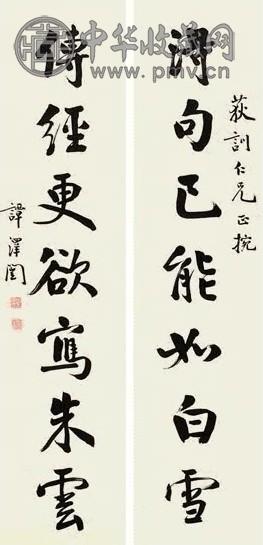 中华收藏网
www.pmv.cn
荻訓仁兄正捥
得句已能如白雪
傳經更欲寫朱雲
譚澤闓